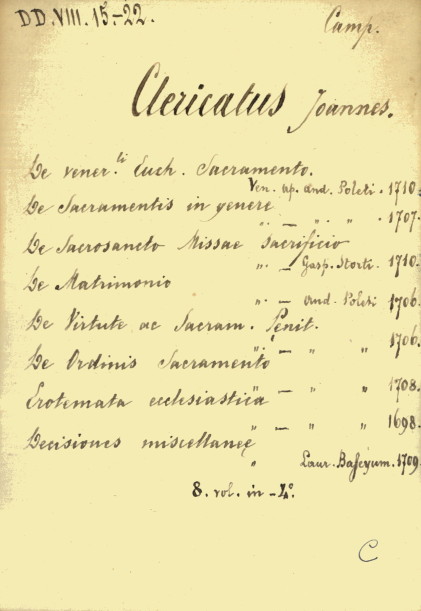 DD. VIII. 15.-22.
Camp.
Clericatus Joannes.
De vener.li Euch. Sacramento.
Ven. ap. And. Poleti. 1710.
De Sacramentis in genere
„ — „ . „ . 1707.
De Sacrosancto Missae Sacrificio
„ . — Gasp. Storti. 1710.
De Matrimonio
„ . — And. Poleti 1706.
De Virtute ac Sacram. Penit.
„ . — „ „ 1706.
De Ordinis Sacramento
„ — „ „ 1708.
Erotemata ecclesiastica
„ — „ „ 1698.
Decisiones miscellaneę
„ Laur. Baseyum. 1709
8. vol. in - 4.°
C